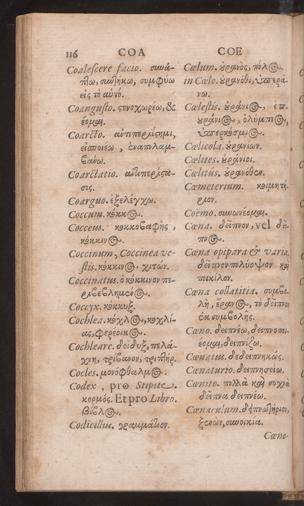 116 COA COE
Coalescere facio. συνά-
πτω, συνήκω, συμφύω
εἰς τὸ αὐτό.
Coangusto. στενοχωρέω, &
έομαι.
Coarcto.
Coarctatio.
σις.
Coarguo. ἐξελέγχω.
Coccum. κόκκος.
Cocceus. κοκκοβαφής,
κόκκινος.
Coccinum, Coccinea ve-
stis. κόκκινος χιτών.
Coccinatus. ὁ κόκκινον πε-
ριβεβλημένος.
Coccyx. κόκκυξ.
Cochlea. κόχλος, κοχλί-
ας,
Cochleare.
Cocles. μονόφθαλμος.
Codex, pro Stipite.
κορμός. Et pro Libro.
βίβλος.
Codicillus. γραμμάτιον.
Cœlum. οὐρανός, πόλος.
in Cœlo. οὐρανόθι,
Cœlestis. οὐράνιος, ἐπ-
ουράνιος, ὀλύμπιος,
ὑπερκόσμιος.
Cœlicola. οὐράνιων.
Cœlites. οὐράνιοι.
Cœlitùs. οὐρανόθεν.
Cœmeterium. κοιμητή-
ριον.
Coëmo. συνωνέομαι.
Cœna. δεῖπνον, vel δεῖ-
πνος.
Cœna opipara & varia.
δεῖπνον πολύοψον καὶ
ποικίλον.
Cœna collatitia. συμβο-
λή, ἔρανος, τὸ δεῖπνον
ἐκ συμβολῆς.
Cœno. δειπνέω, δειπνοποι-
έομαι, δειπνίζω.
Cœnatus. δεδειπνηκώς.
Cœnaturio. δειπνησείω.
Cœnito. πολλὰ καὶ συχνὰ
δεῖπνα δειπνέω.
Cœnaculum.
Cœno-